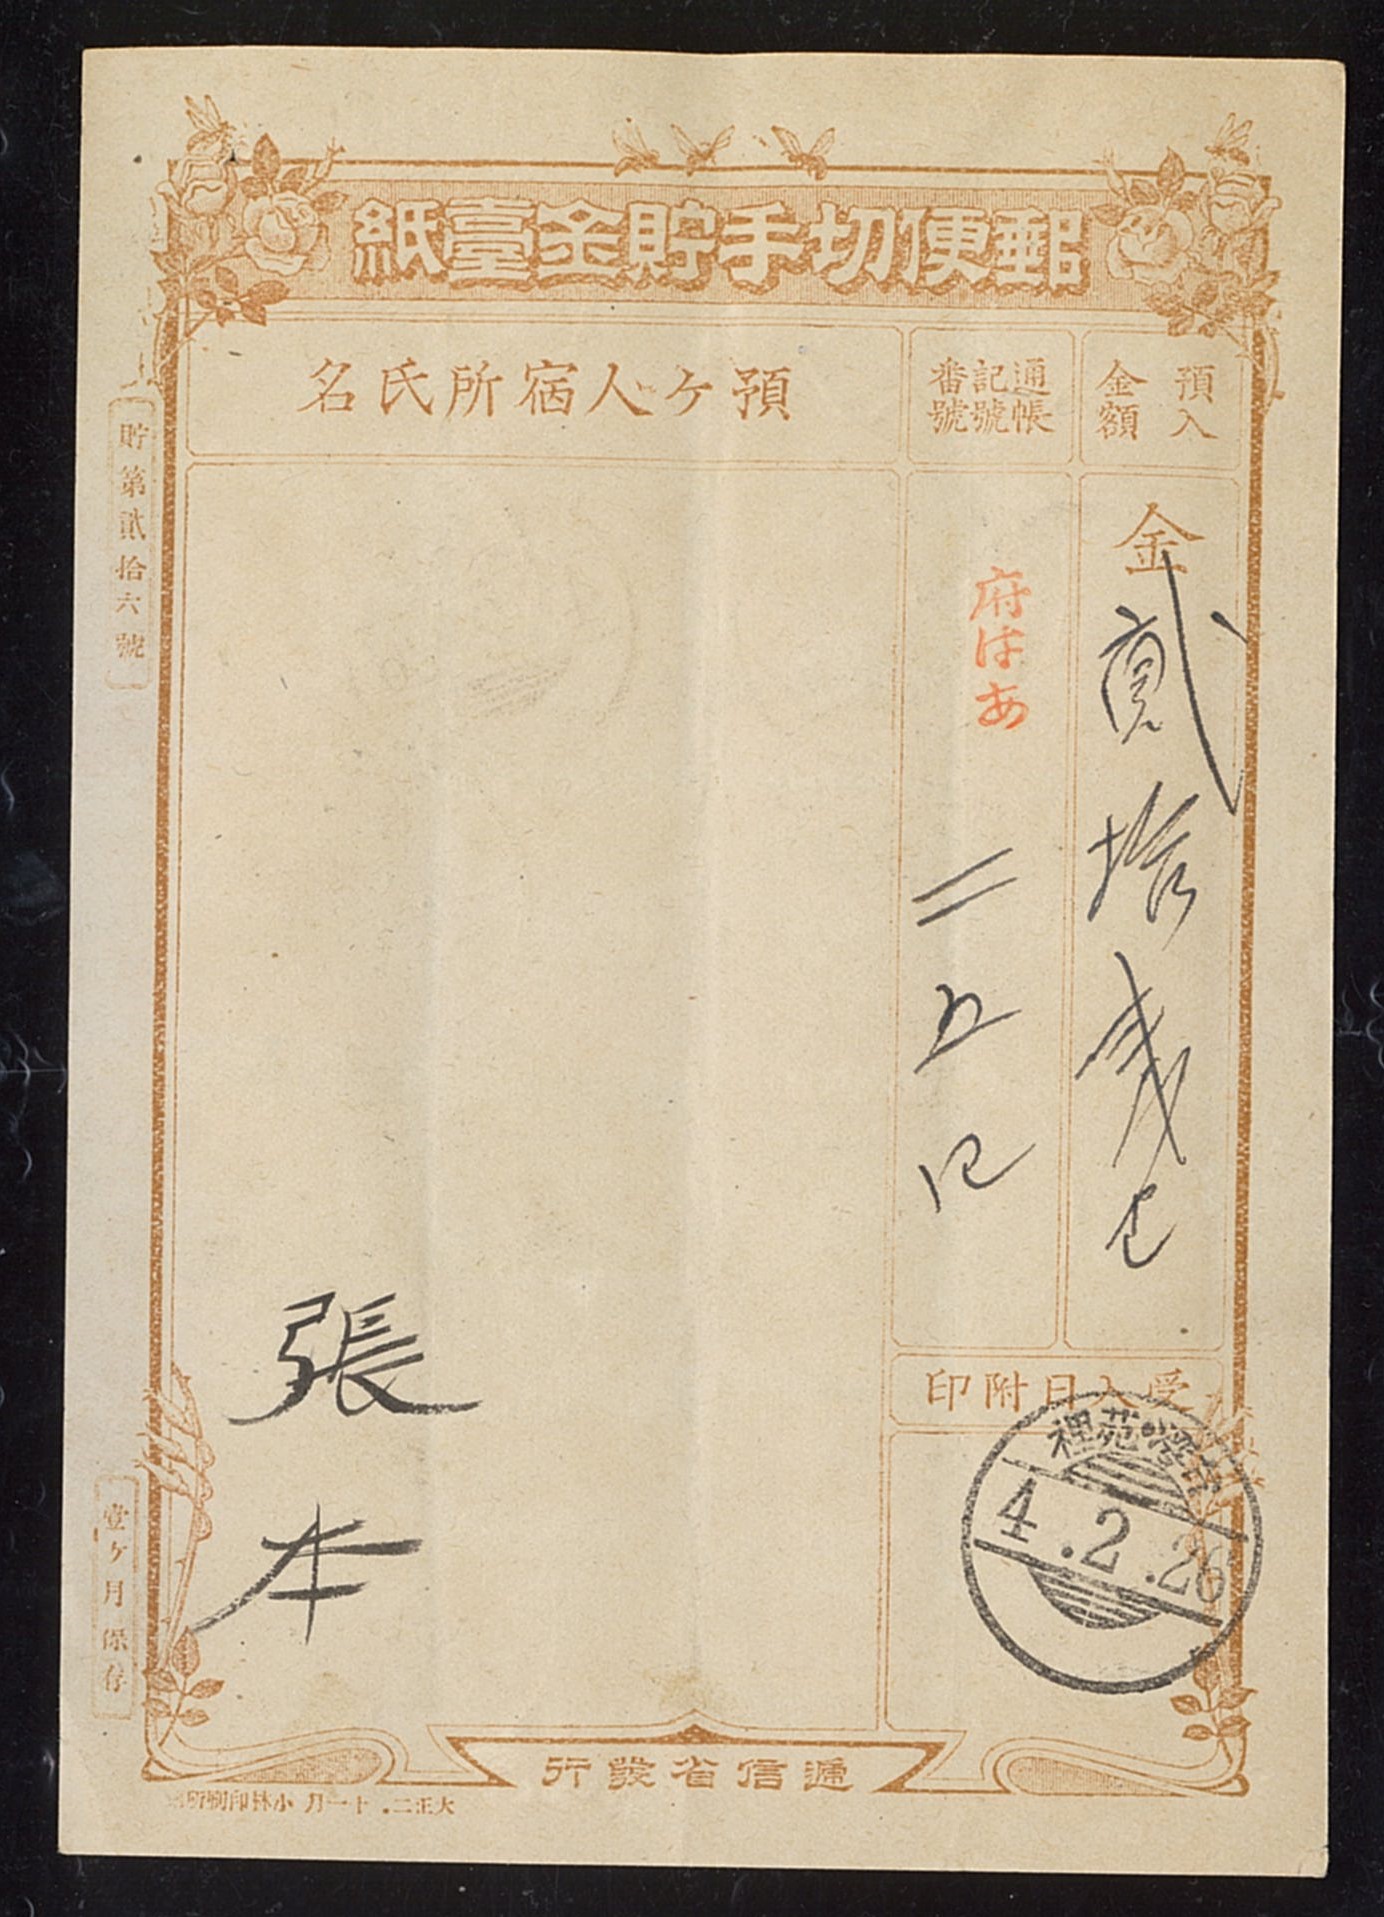 郵便切手貯金臺紙
預入金額
通帳記號番號
預ケ人宿所氏名
金貳拾
府はあ
二五
張本
受入日附印
臺灣・苑裡
4.2.26
貯第貳拾六號
壹ケ月保存
遞信省發行
大正二、十一月 小林印刷所